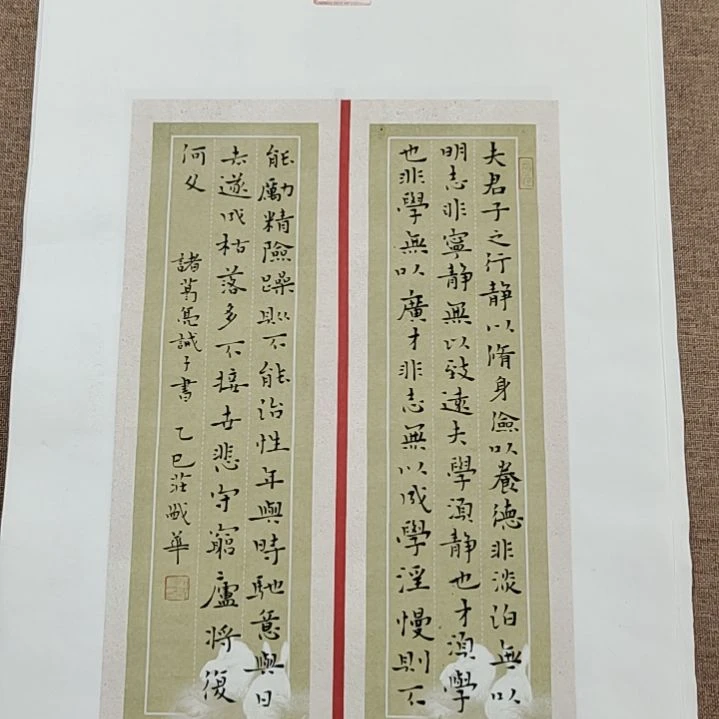 夫君子之行静以脩身儉以養德非淡泊無以
明志非寧静無以致遠夫學須静也才須學
也非學無以廣才非志無以成學淫慢則不
能勵精險躁則不能治性年與時馳意與日
去遂成枯落多不接世悲守窮廬將復
何及
諸葛亮誡子書 乙巳莊華